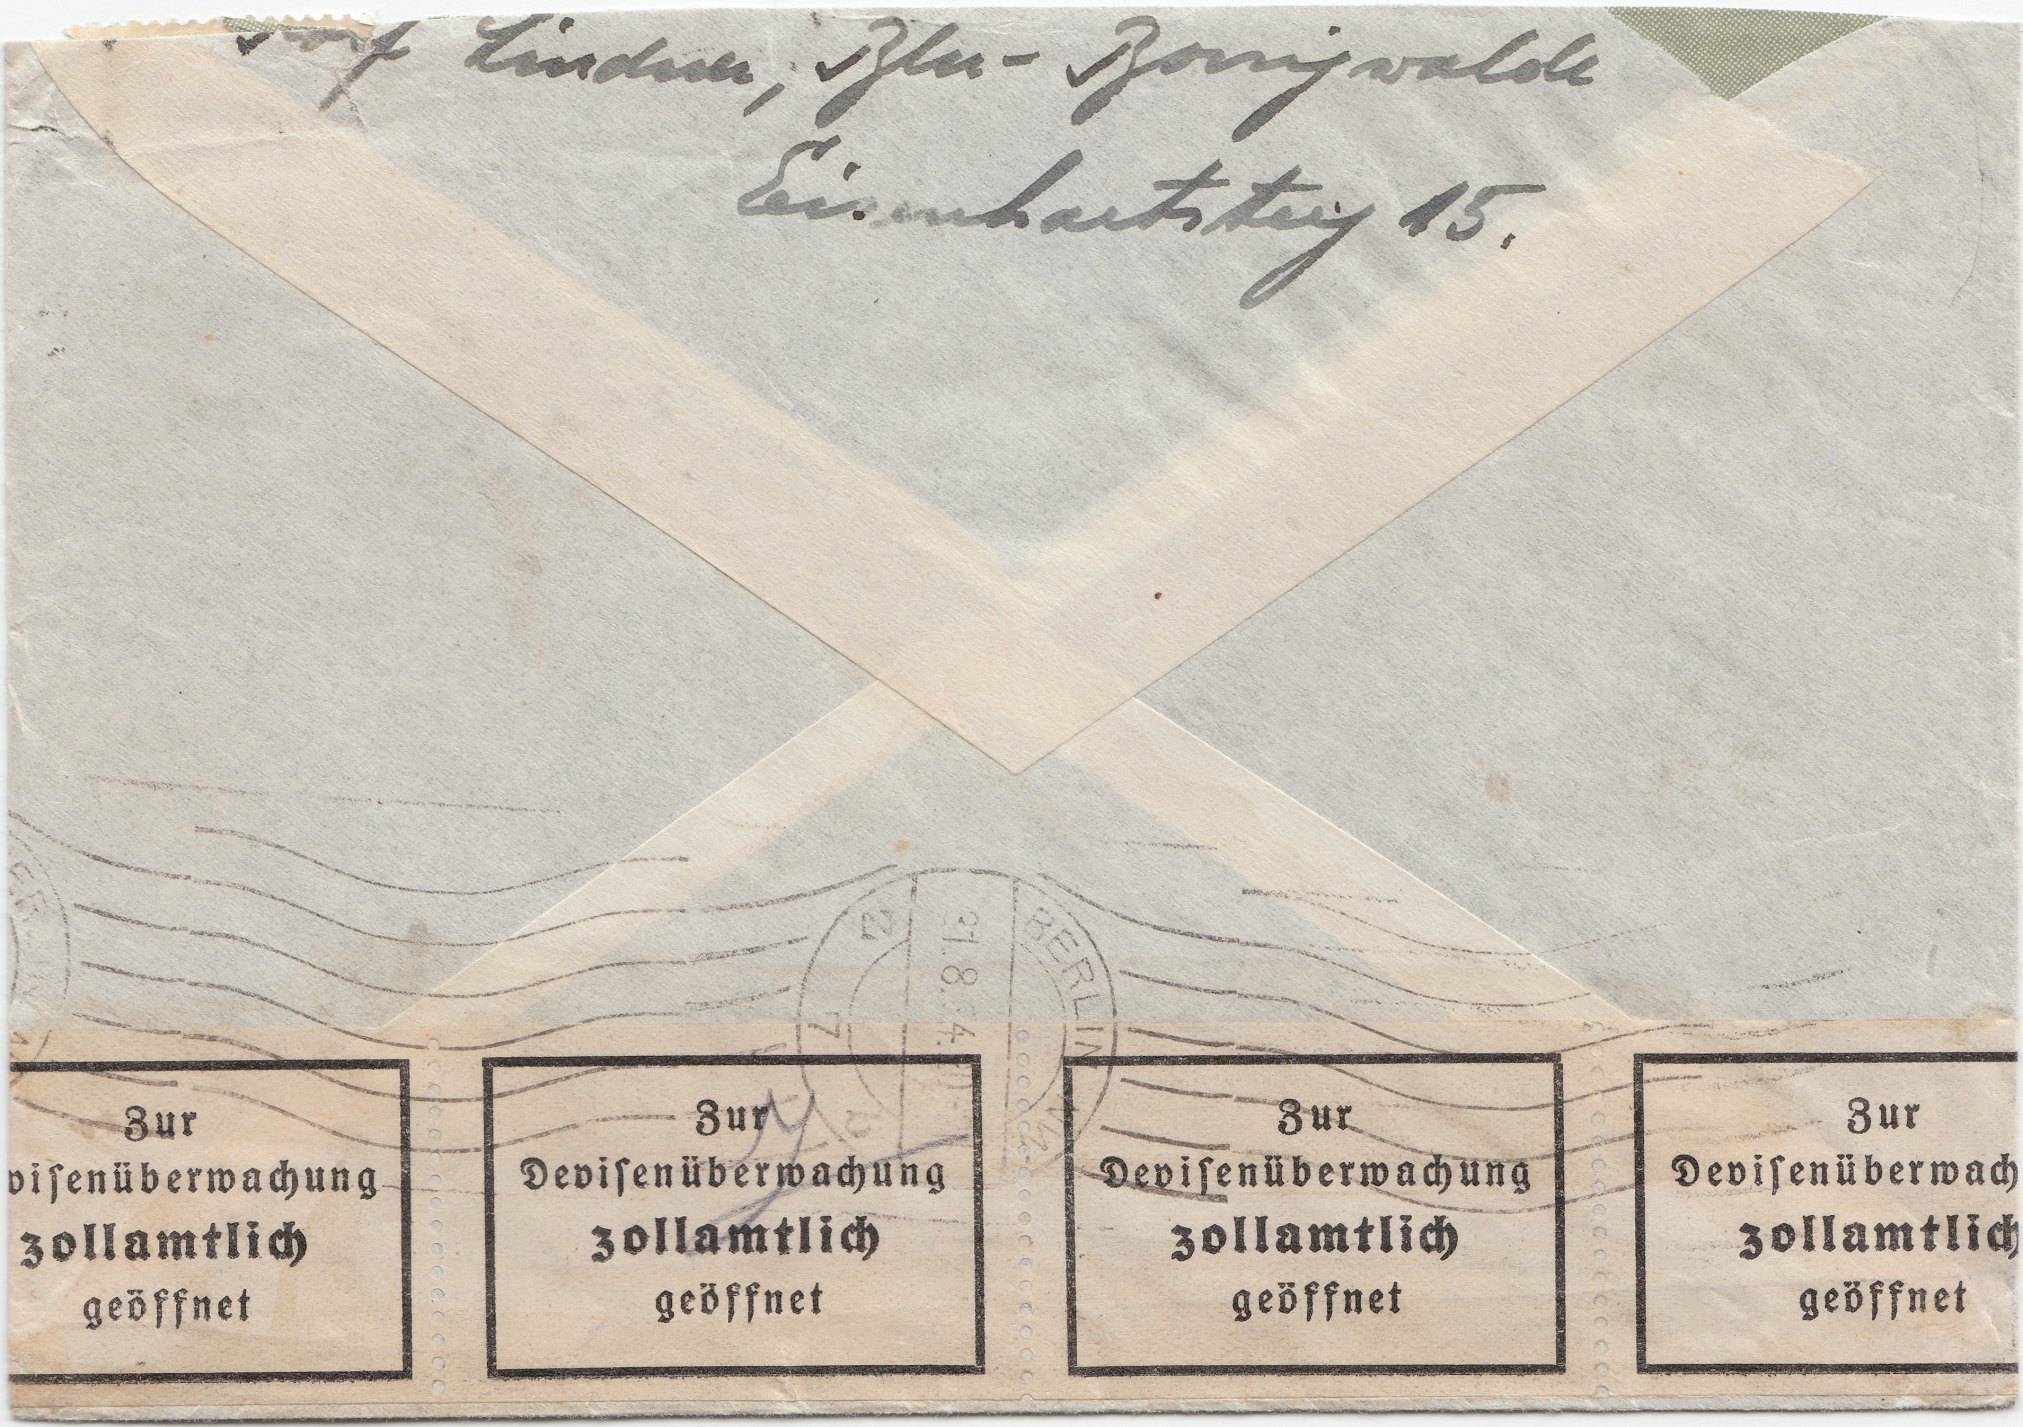 Lindner, Bln- Borsigwalde
Eisenhartsteig 15.
BERLIN
31.8.
2
7
Zur
visenüberwachung
zollamtlich
geöffnet
Zur
Deviſenüberwachung
zollamtlich
geöffnet
Zur
Deviſenüberwachung
zollamtlich
geöffnet
Zur
Deviſenüberwach
zollamtlich
geöffnet